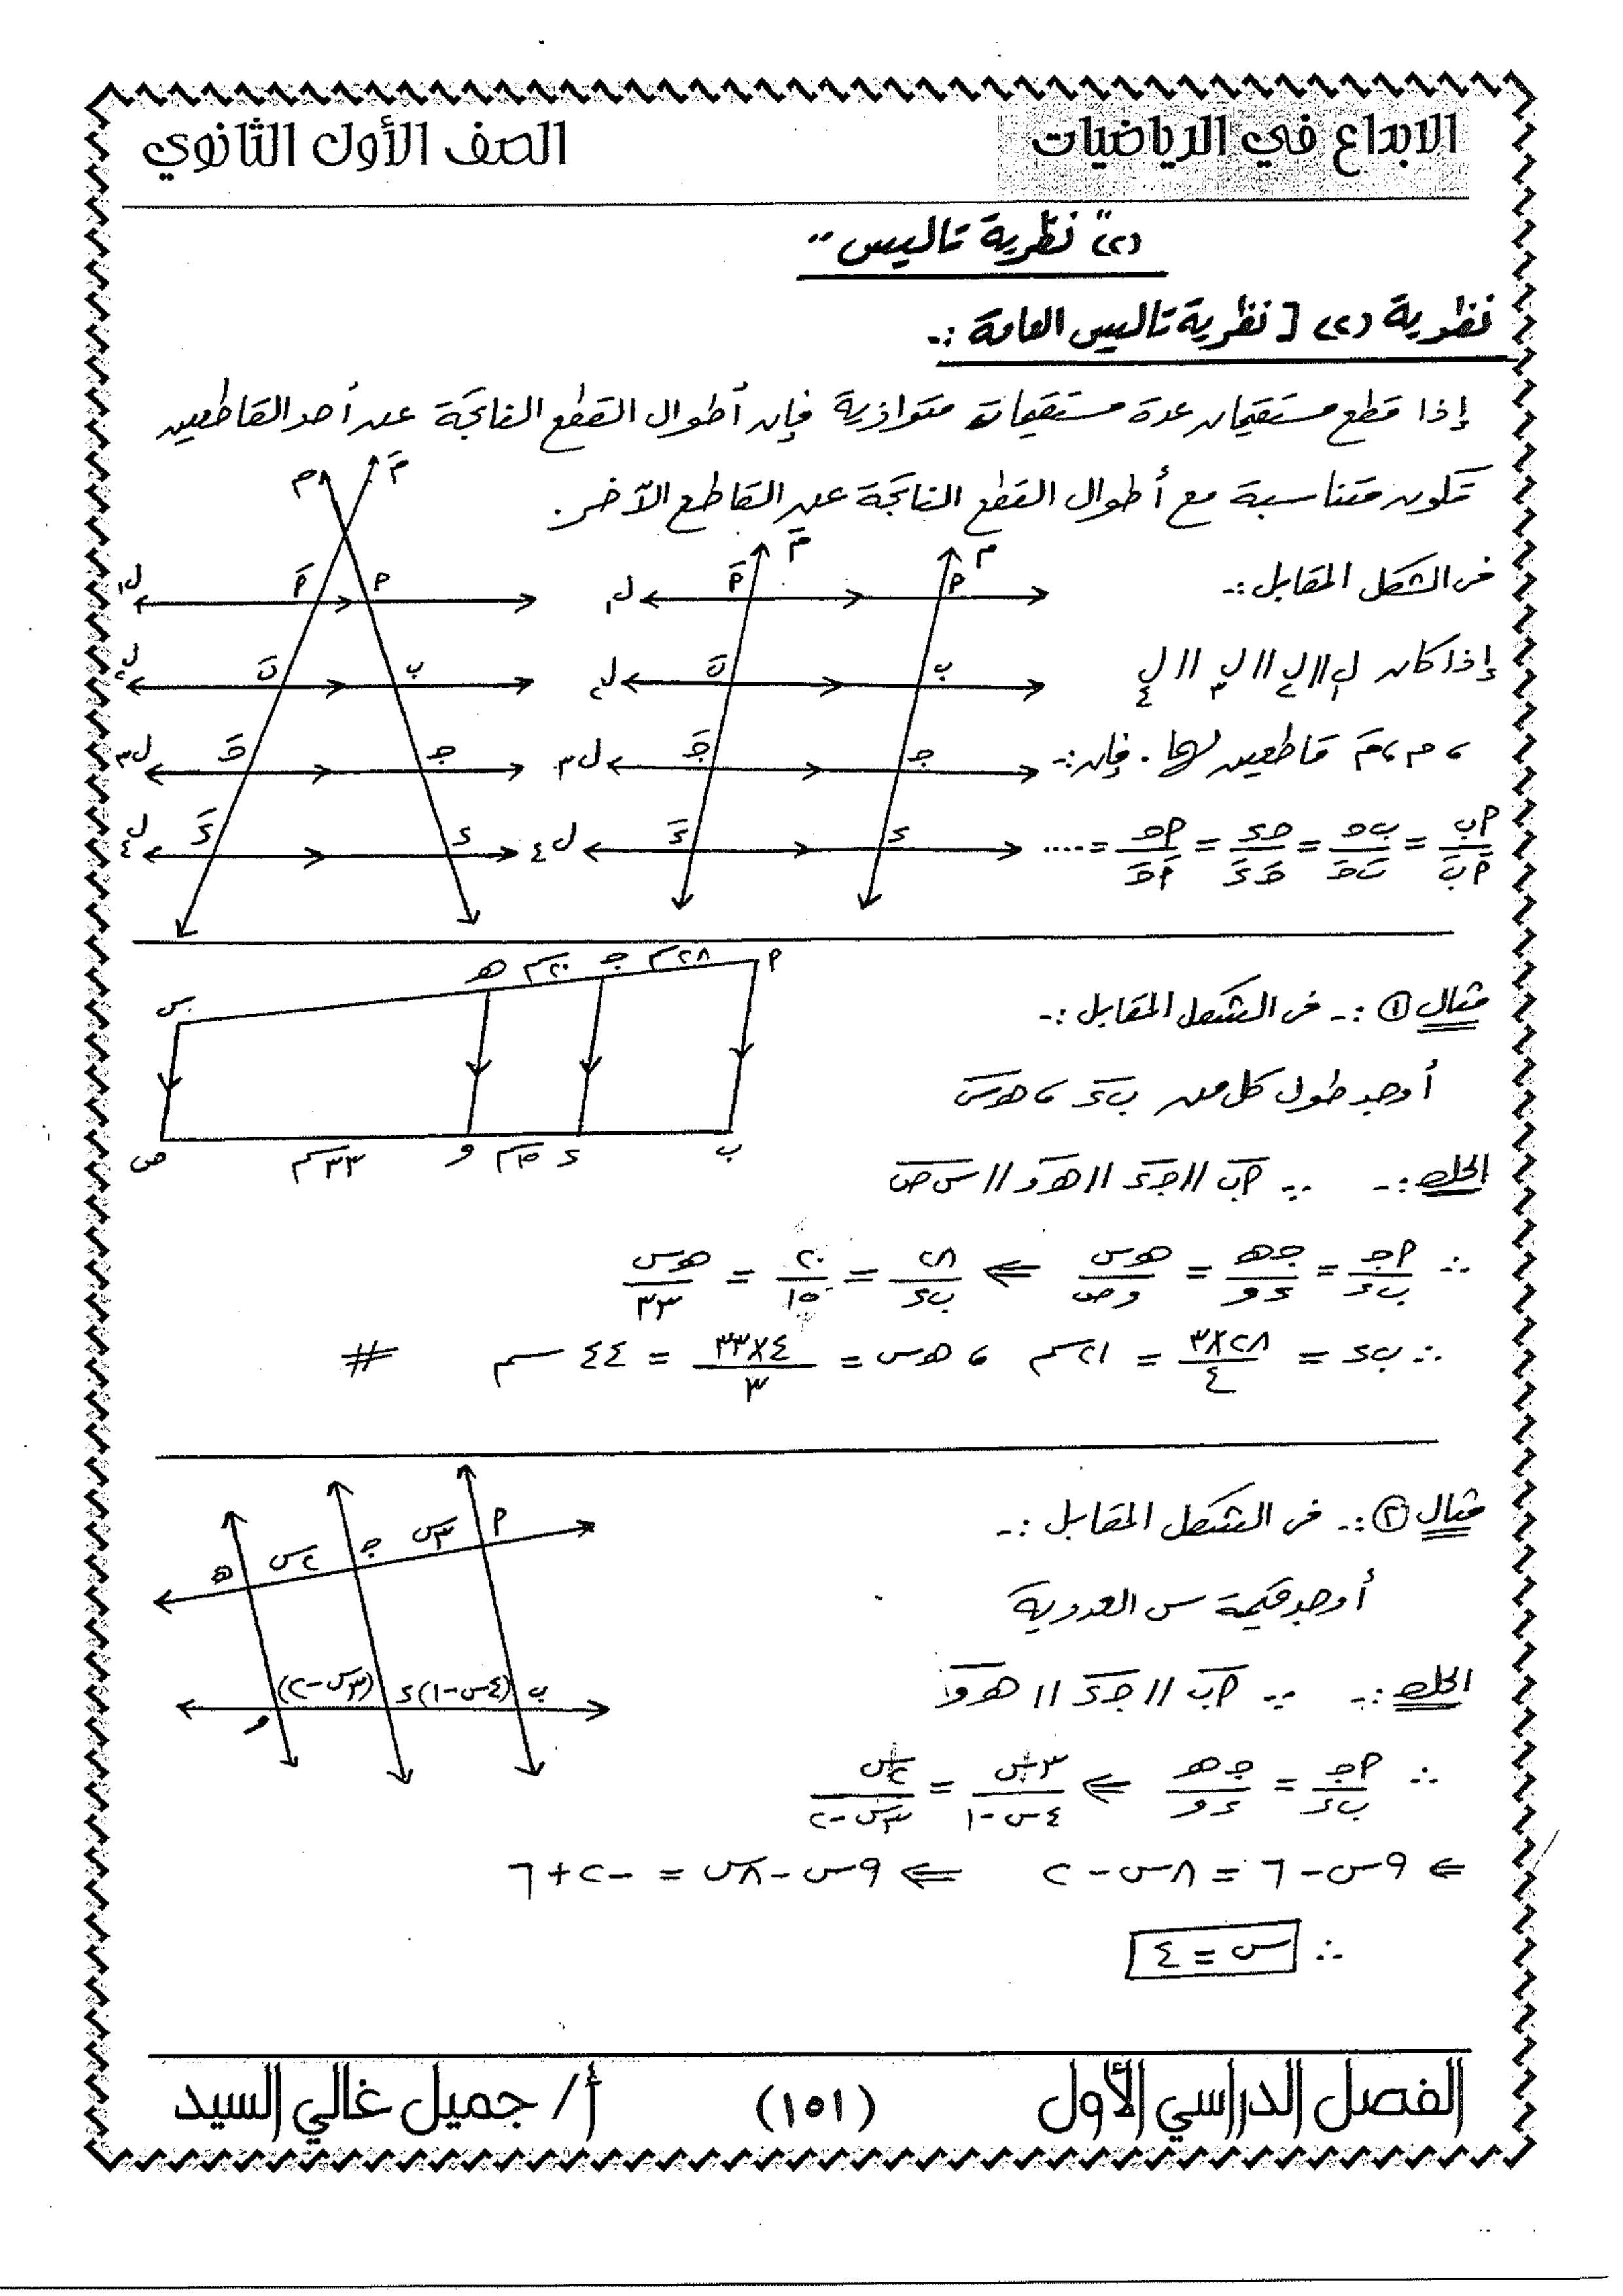 الابداع في الرياضيات
الصف الأول الثانوي
(٢) " نظرية تاليس "
نظرية (٢) [ نظرية تاليس العامة :-
إذا قطع مستقيمان عدة مستقيمات متوازية فإن أطوال القطع الناتجة على أحد القاطعين
تكون متناسبة مع أطوال القطع الناتجة على القاطع الآخر.
م مَ
مَ م
فى الشكل المقابل :-
ل١ أَ أ
ل١ أَ أ
إذا كان ل١ // ل٢ // ل٣ // ل٤
ل٢ بَ ب
ل٢ بَ ب
، م ، مَ قاطعين لهما . فإن :-
ل٣ جَ ج
ل٣ جَ ج
أب/أَبَ = بج/بَجَ = جء/جَءَ = أج/أَجَ = ....
ل٤ ءَ ء
ل٤ ءَ ء
أ ٢٨سم ج ٢٠سم هـ س
مثال ① :- فى الشكل المقابل :-
أوجد طول كل من ب ء ، هـ س
ب ء ١٥سم و ٣٣سم ص
الحل :- ∵ أب // جء // هـ و // س ص
∴ أج/بء = جهـ/ءو = هـس/وص ⇐ ٢٨/بء = ٢٠/١٥ = هـس/٣٣
∴ بء = ٢٨×٣/٤ = ٢١سم ، هـس = ٤×٣٣/٣ = ٤٤ سم #
مثال ② :- فى الشكل المقابل :-
أ ٣س ج ٢س هـ
أوجد قيمة س العددية
ب (٤س-١) ء (٣س-٢) و
الحل :- ∵ أب // جء // هـ و
∴ أج/بء = جهـ/ءو ⇐ ٣س/٤س-١ = ٢س/٣س-٢
⇐ ٩س-٦ = ٨س-٢ ⇐ ٩س-٨س = -٢+٦
∴ س = ٤
الفصل الدراسي الأول
(١٥١)
أ/ جميل غالي السيد